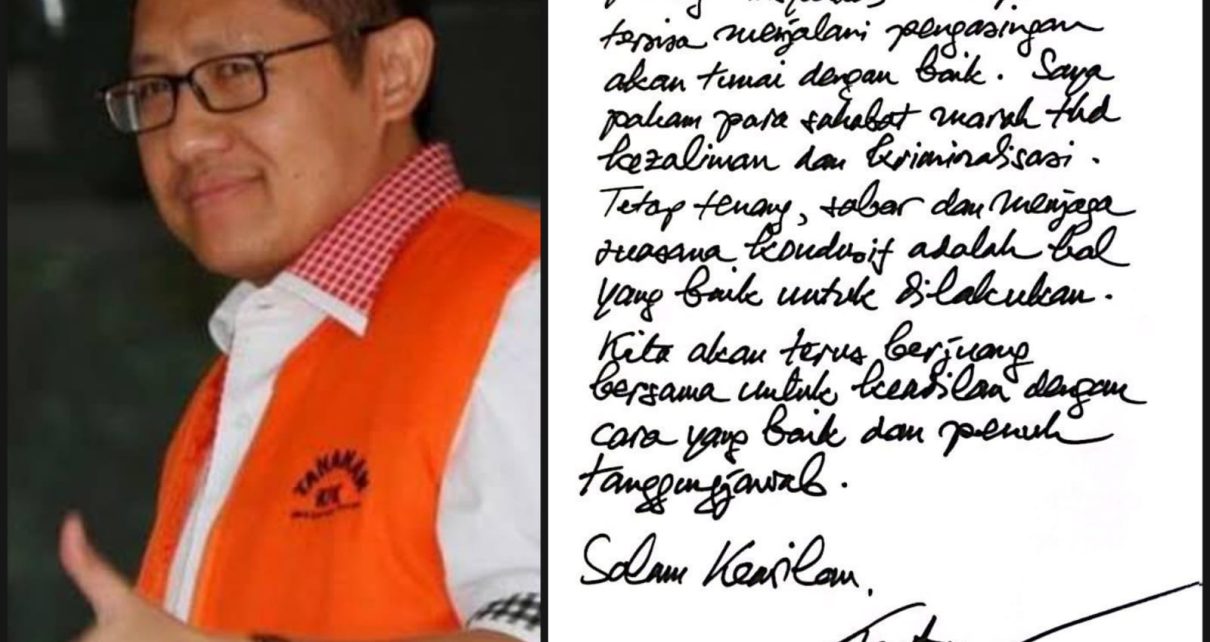 TAHANAN
KPK
tersisa menjalani pengasingan
akan tunai dengan baik. Saya
paham para sahabat marah thd
kezaliman dan kriminalisasi.
Tetap tenang, sabar dan menjaga
suasana kondusif adalah hal
yang baik untuk dilakukan.
Kita akan terus berjuang
bersama untuk keadilan dengan
cara yang baik dan penuh
tanggungjawab.
Salam Keadilan.